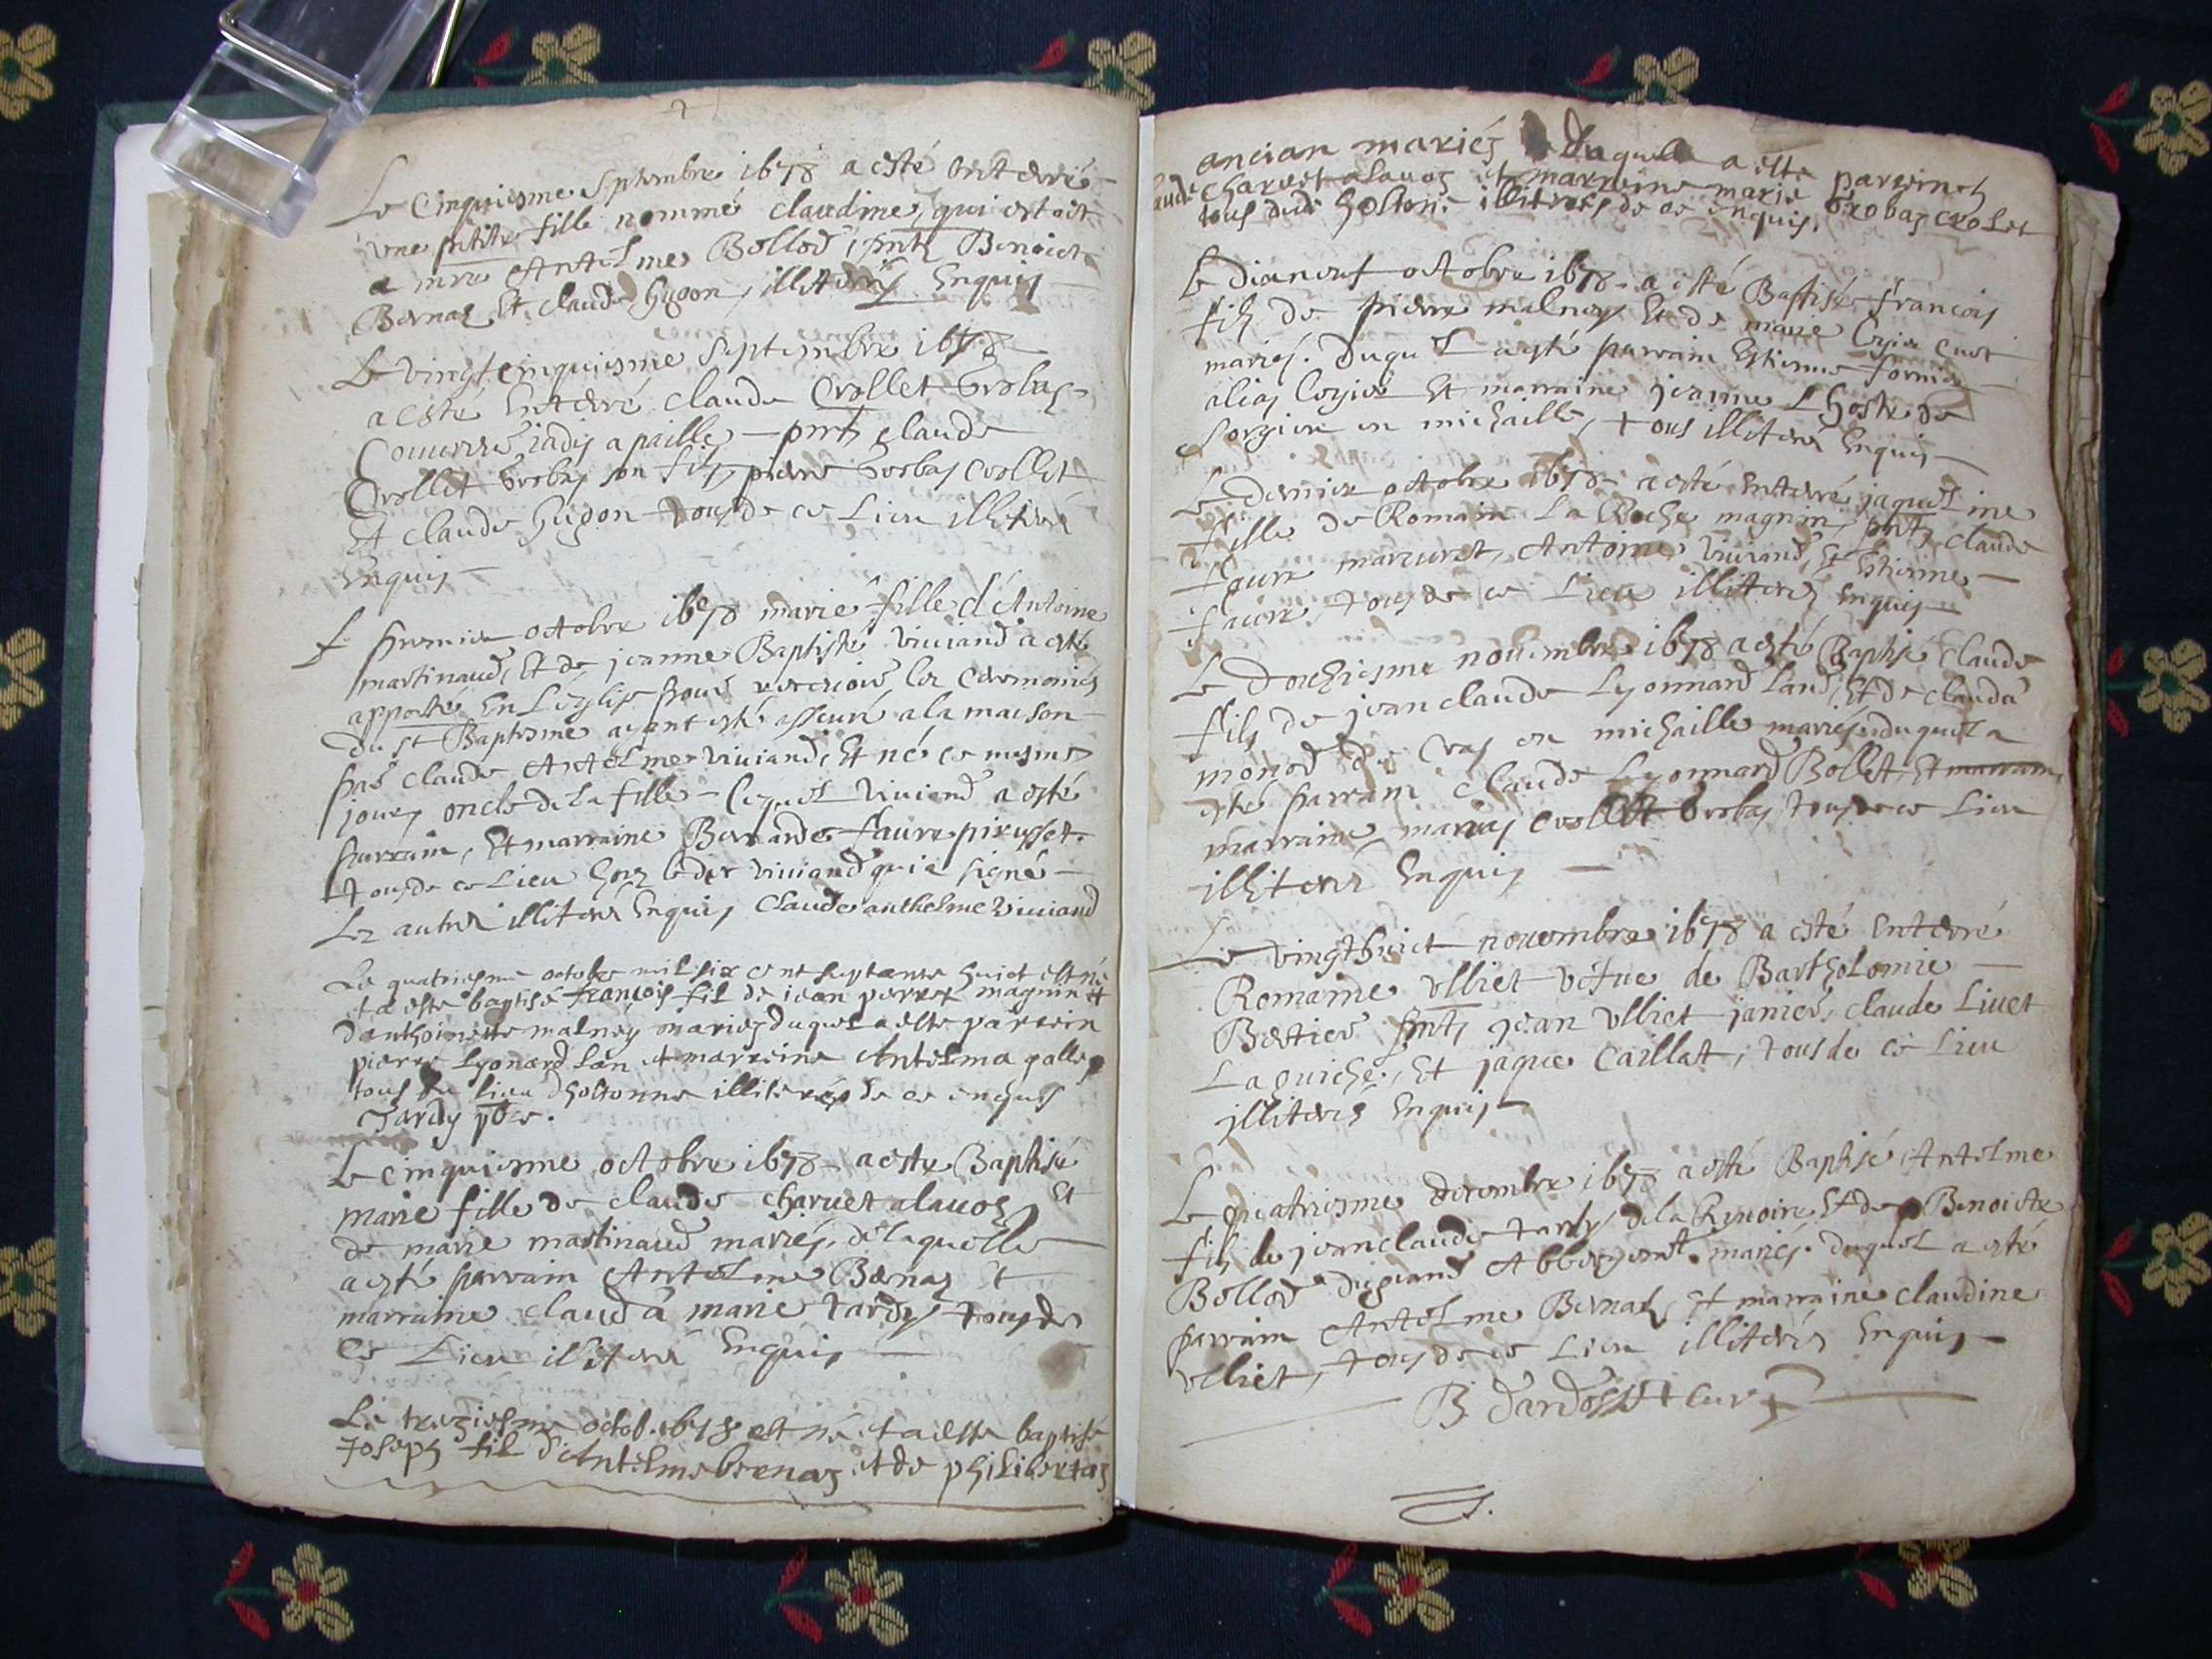 Le Cinquiesme Septembre 1678 a esté Enterré
une petite fille nommé claudine, qui estoit
a mre Antelme Bollod, pnts Benoict
Bernaz Et claude Gugon, illiterés Enquis
Le vingt cinquiesme Septembre 1678
a esté Enterré claude Crollet Brobas
Couvreur jadis a paille, pnts claude
Crollet Brobas son fils, pierre Brobas Crollet
Et claude Gugon tous de ce Lieu illiterés
Enquis
Le premier octobre 1678 marie fille d'Antoine
martinaud, Et de jeanne Baptiste Viviand a esté
apporté En L'eglise pour recevoir les Ceremonies
du st Baptesme ayant esté assuré a la maison
par claude Antelme Viviand, Et né ce mesme
jour, oncle de La fille, Lequel Viviand a esté
parrain, Et marraine Bernarde faure pirusset
tous de ce Lieu hors ledit Viviand qui a signé
Les autres illiterés Enquis Claude anthelme Viviand
Le quatriesme octobre mil six cent septante huict est né
et a este baptisé françois fil de jean perret magnin et
d'anthoinette malney mariez duquel a este parrein
pierre Lyonard Lan et marreine Antelma galle
tous du lieu d'hostonne illiterés de ce enquis
Tardy pbre.
Le cinquiesme octobre 1678 a este Baptisé
marie fille de claude charvet alavoz, Et
de marie martinaud mariés, de laquelle
a esté parrain Antelme Bernaz Et
marraine clauda marie tardy tous de
Ce Lieu illiterés Enquis
Le treziesme octob. 1678 est né et a este baptisé
Joseph fil d'Antelme bernaz et de philibertaz
ancian mariés duquel a este parrein
claude charvet alavoz et marreine marie brobas crolet
tous dud. hostonne illiterés de ce enquis.
Le dianeuf octobre 1678 a esté Baptisé françois
fils de pierre malney Et de marie Cyvot
mariés. Duquel a esté parrain Estienne fornier
alias Cogier Et marraine jeanne L'hoste de
Lorgieu en michaille, tous illiterés Enquis
Le dernier octobre 1678 a esté Enterré jaqueline
fille de Romain La Roche magnin, pnts claude
faure marcuret, Antoine Viviand, Et Estienne
faure, tous de ce Lieu illiterés Enquis
Le Douziesme novembre 1678 a esté Baptisé claude
fils de jean claude Lyonnard Land, Et de clauda
monod de Cras en michaille mariés duquel a
esté parrain claude Lyonnard Bollet, Et marraine
marraine marias Crollet Brobas, tous de ce Lieu
illiterés Enquis
Le vingthuict novembre 1678 a esté Enterré
Romaine Ulliet vefue de Bartholomie
Bertier pnts jean Ulliet janier, claude Livet
Laguiche, Et jaque Caillat, tous de ce Lieu
illiterés Enquis
Le quatriesme decembre 1678 a esté Baptisé Antelme
fils de jean claude tardy dela Renoire Et de Benoicte
Bollod du grand Abbergemt. mariés. Duquel a esté
parrain Antelme Bernaz, Et marraine claudine
Ulliet, tous de ce Lieu illiterés Enquis
B. Dardosset curé